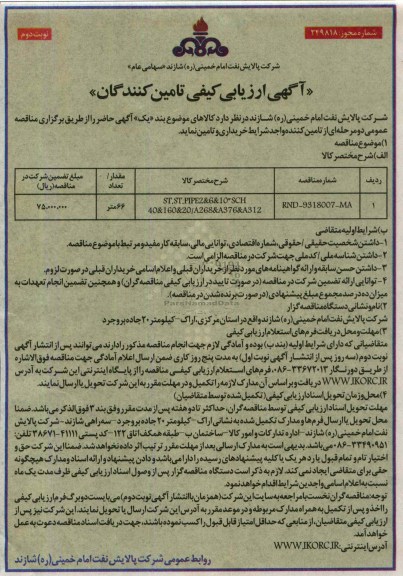 شماره مجوز: ۲۴۹۸۱۸
نوبت دوم
شرکت پالایش نفت امام خمینی (ره) شازند «سهامی عام»
«آگهی ارزیابی کیفی تامین کنندگان»
شرکت پالایش نفت امام خمینی (ره) شازند در نظر دارد کالاهای موضوع بند «یک» آگهی حاضر را از طریق برگزاری مناقصه
عمومی دو مرحله‌ای از تامین کننده واجد شرایط خریداری و تامین نماید.
۱) موضوع مناقصه
الف) شرح مختصر کالا
ردیف شماره مناقصه شرح مختصر کالا مقدار/تعداد مبلغ تضمین شرکت در مناقصه (ریال)
۱ RND-9318007-MA ST.ST.PIPE2&6&10"SCH ۶۴ متر ۷۵,۰۰۰,۰۰۰
40&160&20/A268&A376&A312
ب) شرایط اولیه متقاضی
۱- داشتن شخصیت حقیقی / حقوقی، شماره اقتصادی، توانایی مالی، سابقه کار مفید و مرتبط با موضوع مناقصه.
۲- داشتن شناسه ملی / کد ملی جهت شرکت در مناقصه الزامی است.
۳- داشتن حسن سابقه و ارائه گواهینامه های مورد نظر از خریداران قبلی و اعلام اسامی خریداران قبلی در صورت لزوم.
۴- توانایی ارائه تضمین شرکت در مناقصه (در صورت تایید در ارزیابی کیفی مناقصه گران) و همچنین تضمین انجام تعهدات به
میزان ده درصد مجموع مبلغ پیشنهادی (در صورت برنده شدن در مناقصه).
۲) نام و نشانی دستگاه مناقصه گزار
شرکت پالایش نفت امام خمینی (ره) شازند واقع در استان مرکزی، اراک - کیلومتر ۲۰ جاده بروجرد
۳) مهلت و محل دریافت فرم های استعلام ارزیابی کیفی
متقاضیانی که دارای شرایط اولیه (بند ب) بوده و آمادگی لازم جهت انجام مناقصه مذکور را دارند می توانند پس از انتشار آگهی
نوبت دوم (سه روز پس از انتشار آگهی نوبت اول) به مدت پنج روز کاری ضمن ارسال اعلام آمادگی جهت مناقصه فوق الاشاره
از طریق دورنگار ۳۳۶۷۲۰۱۳-۰۸۶، فرم های استعلام ارزیابی کیفی مناقصه را از پایگاه اینترنتی این شرکت به آدرس
WWW.IKORC.IR دریافت و بر اساس آن مدارک لازمه را تکمیل و در مهلت مقرر به این شرکت تحویل یا ارسال نمایند.
۴) محل و زمان تحویل اسناد ارزیابی کیفی (تکمیل شده توسط متقاضیان)
مهلت تحویل اسناد ارزیابی کیفی توسط مناقصه گران، حداکثر تا دو هفته پس از مدت مقرر وفق بند ۳ فوق الذکر می باشد. ضمنا
محل تحویل یا ارسال فرم ها و مدارک تکمیل شده به نشانی اراک - کیلومتر ۲۰ جاده بروجرد - سه راهی شازند - شرکت پالایش
نفت امام خمینی (ره) شازند - اداره تدارکات و امور کالا - ساختمان ب - طبقه همکف اتاق ۱۲۲ - کد پستی ۴۱۱۱۱-۳۸۶۷۱ تلفن:
۳۳۴۹۰۹۵۱-۰۸۶ می باشد. بدیهی است به مدارک ارسالی بعد از مهلت مقرر ترتیب اثر داده نخواهد شد. ضمنا این شرکت حق و
اختیار تام و تمام قبول یا رد هر یک یا کلیه پیشنهادهای رسیده را دارا می باشد و دادن پیشنهاد و ارائه اسناد و مدارک هیچگونه
حقی برای متقاضی ایجاد نمی کند. لازم به ذکر است دستگاه مناقصه گزار پس از وصول اسناد ارزیابی کیفی ظرف مدت یک ماه
نسبت به اعلام اسامی واجدین شرایط اقدام خواهد نمود.
توجه: مناقصه گران نخست با مراجعه به سایت این شرکت (همزمان با انتشار آگهی نوبت دوم) می بایست دو برگ فرم ارزیابی کیفی
را اخذ و پس از تکمیل به همراه مدارک مربوطه و در موعد مقرر به آدرس این شرکت ارسال یا تحویل نمایند. این شرکت نیز پس از
ارزیابی کیفی متقاضیان، از منابعی که حداقل امتیاز قابل قبول را کسب نموده باشند، جهت دریافت اسناد مناقصه دعوت به عمل
خواهد آمد.
آدرس اینترنتی: WWW.IKORC.IR
روابط عمومی شرکت پالایش نفت امام خمینی (ره) شازند